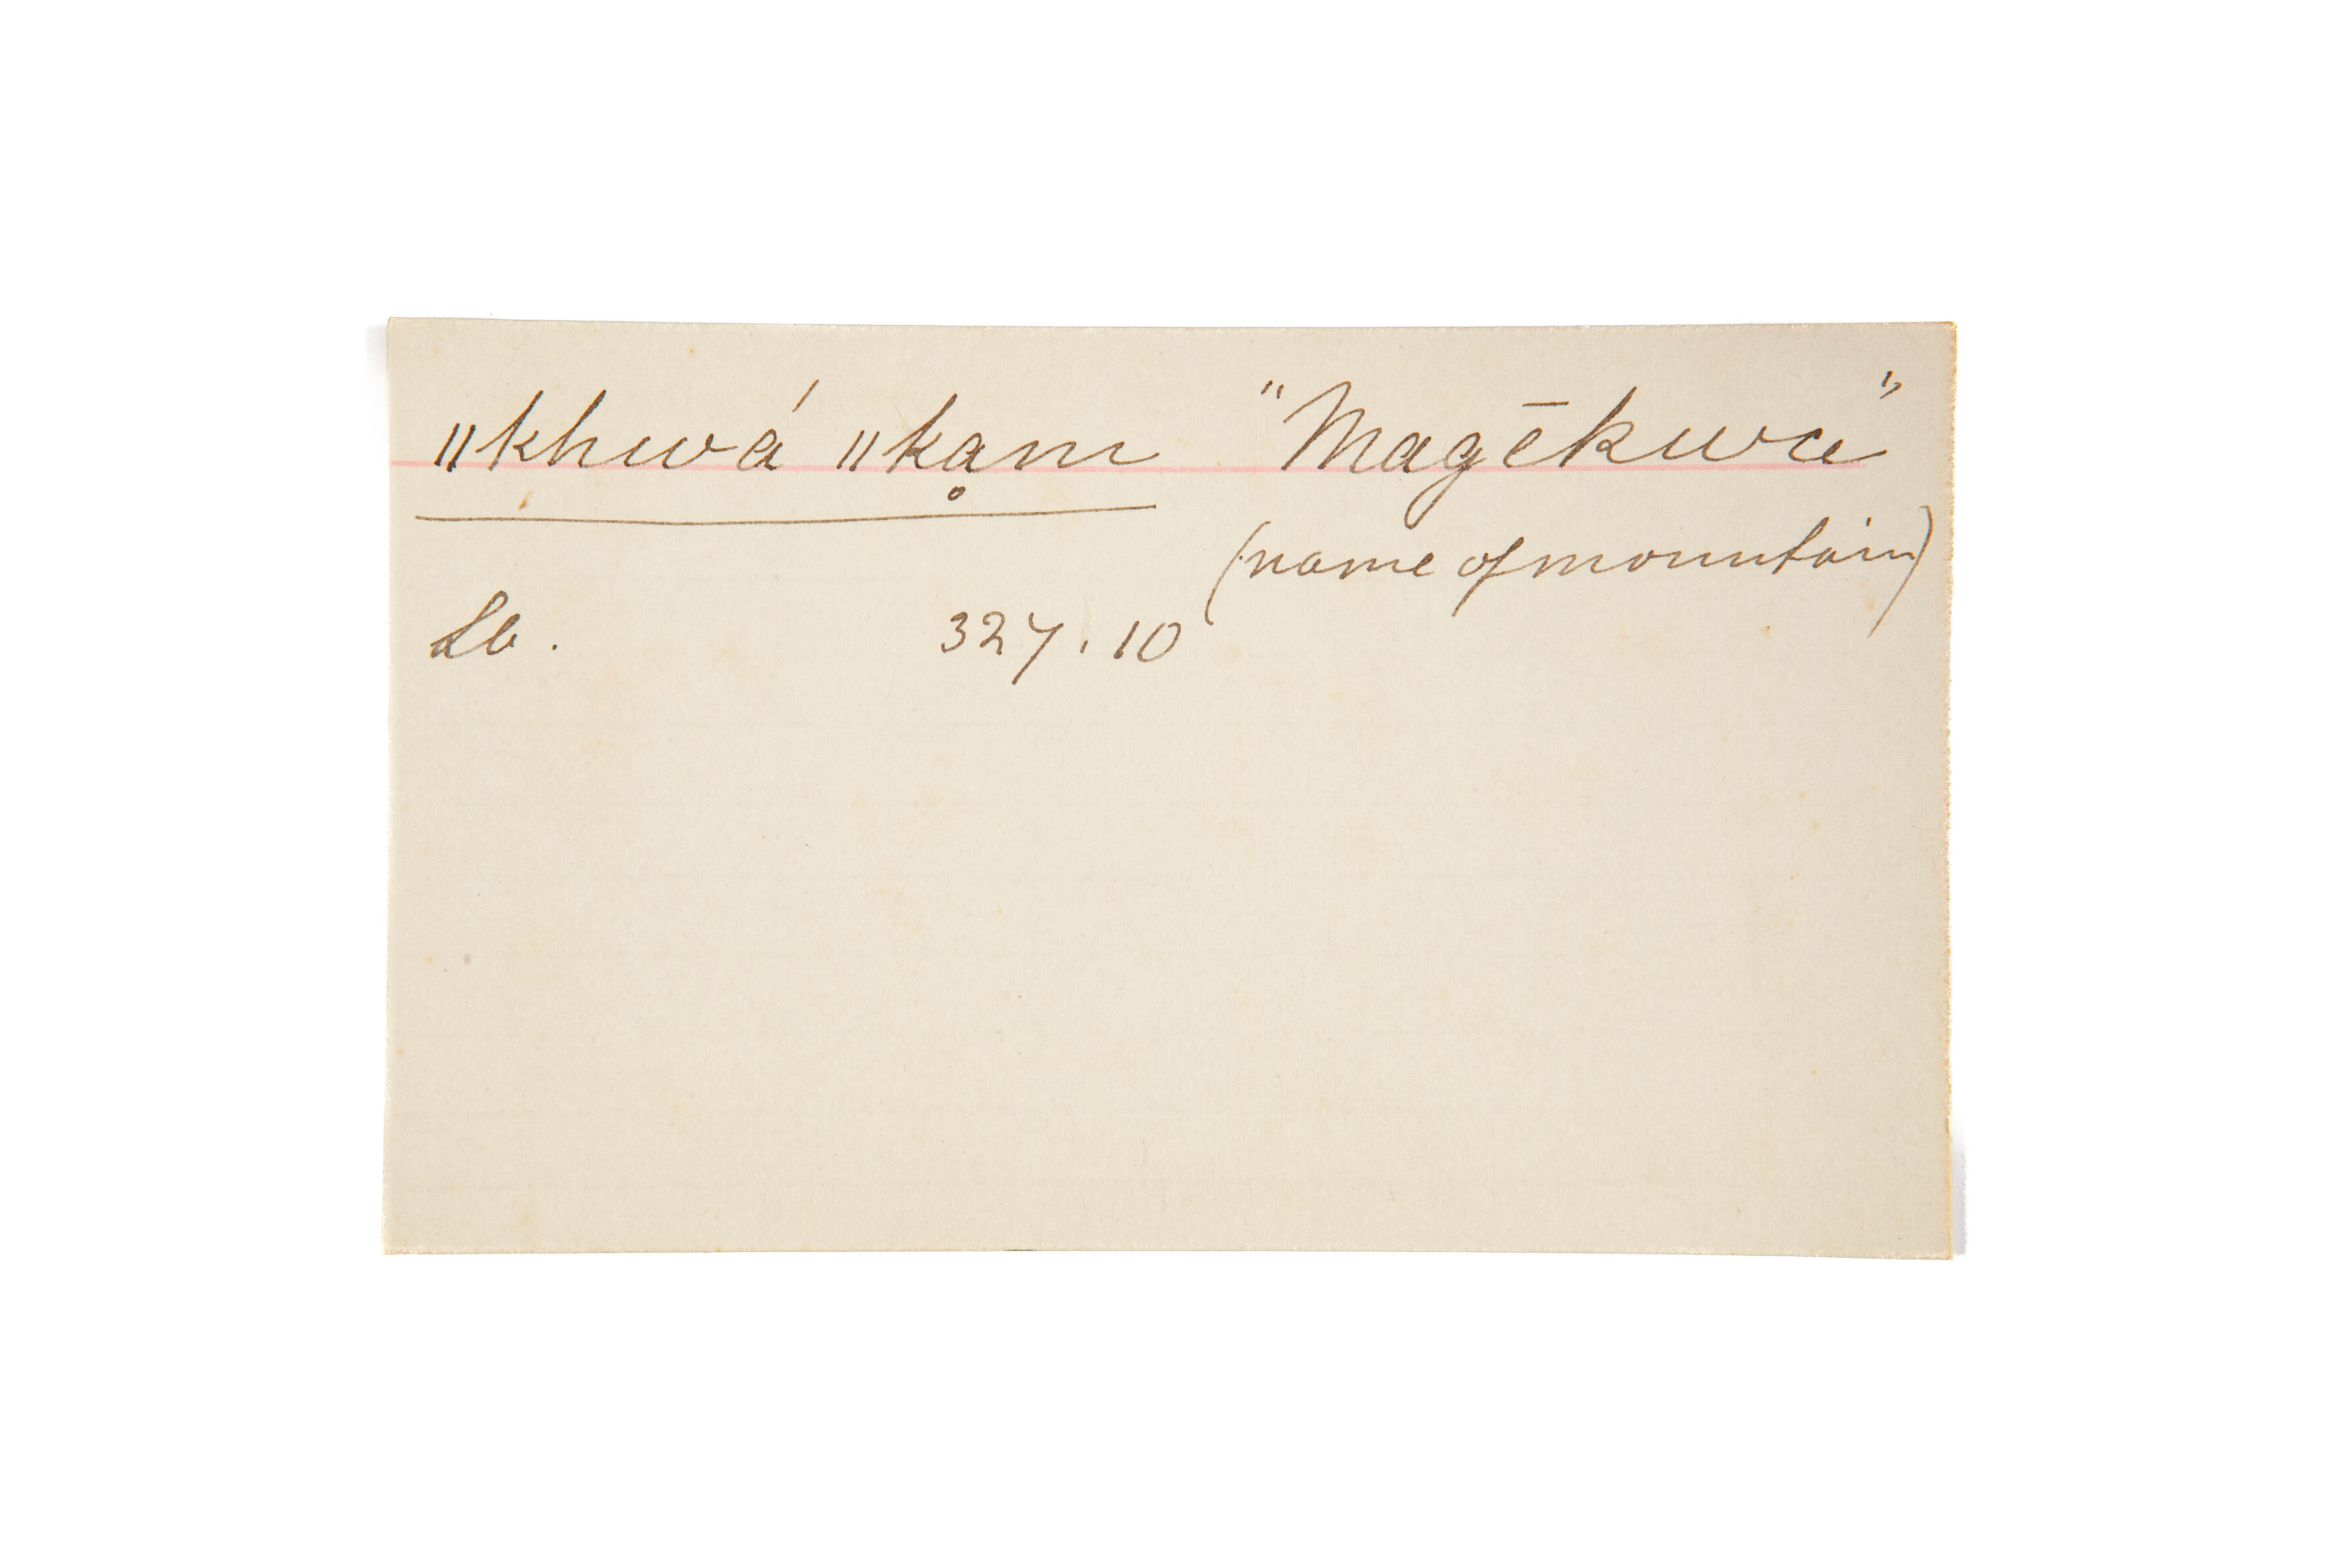 ǁkhwá ǁkḁm "Magēkwa"
(name of mountain)
Lb. 327.10